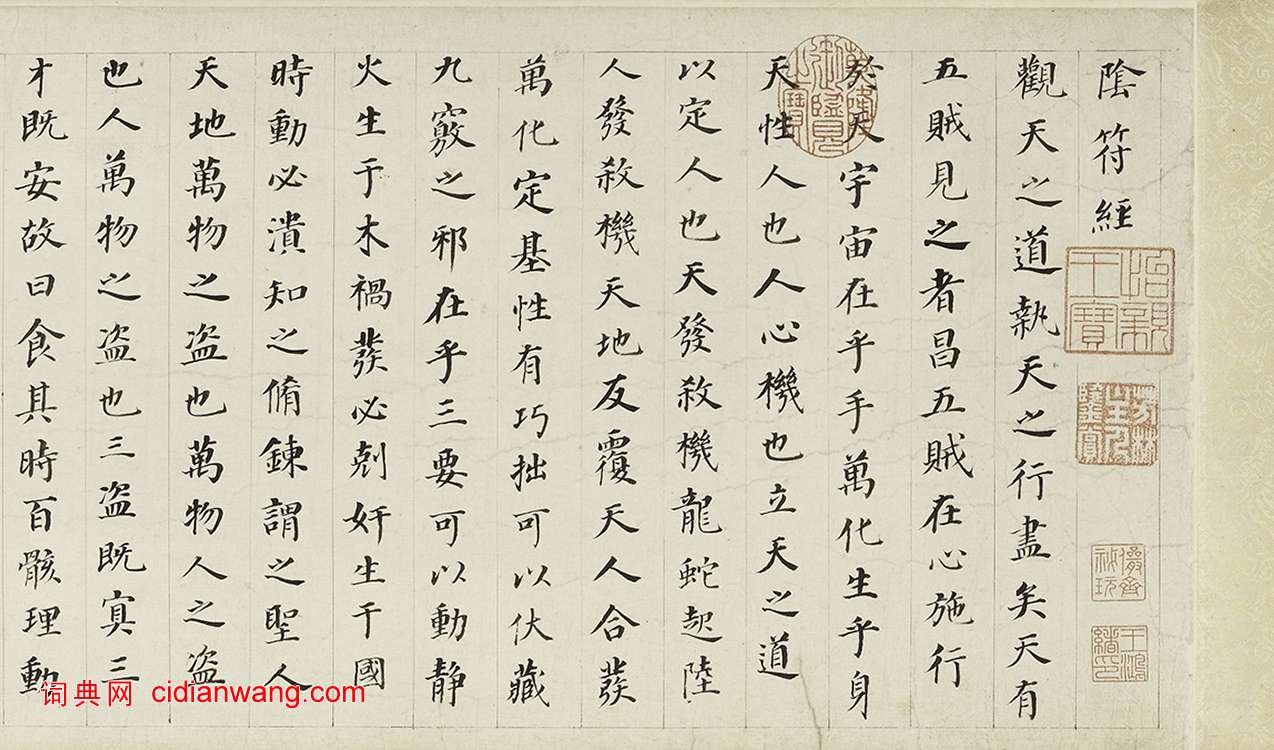 陰符經
觀天之道執天之行盡矣天有
五賊見之者昌五賊在心施行
於天宇宙在乎手萬化生乎身
天性人也人心機也立天之道
以定人也天發殺機龍蛇起陸
人發殺機天地反覆天人合發
萬化定基性有巧拙可以伏藏
九竅之邪在乎三要可以動靜
火生于木禍發必剋奸生于國
時動必潰知之脩鍊謂之聖人
天地萬物之盗也萬物人之盗
也人萬物之盗也三盗既冥三
才既安故曰食其時百骸理動
怡親王寶
儼齋秘玩
王鴻緒印
乾隆御覽之寶
词典网 cidianwang.com